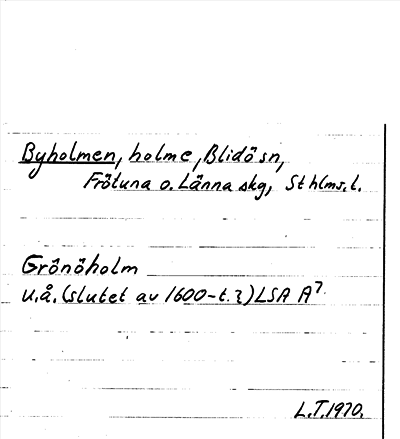 Byholmen, holme, Blidö sn,
Frötuna o. Länna skg, Sthlms. l.
Grönöholm
u.å. (slutet av 1600-t.?) LSA A7
L.T. 1970.